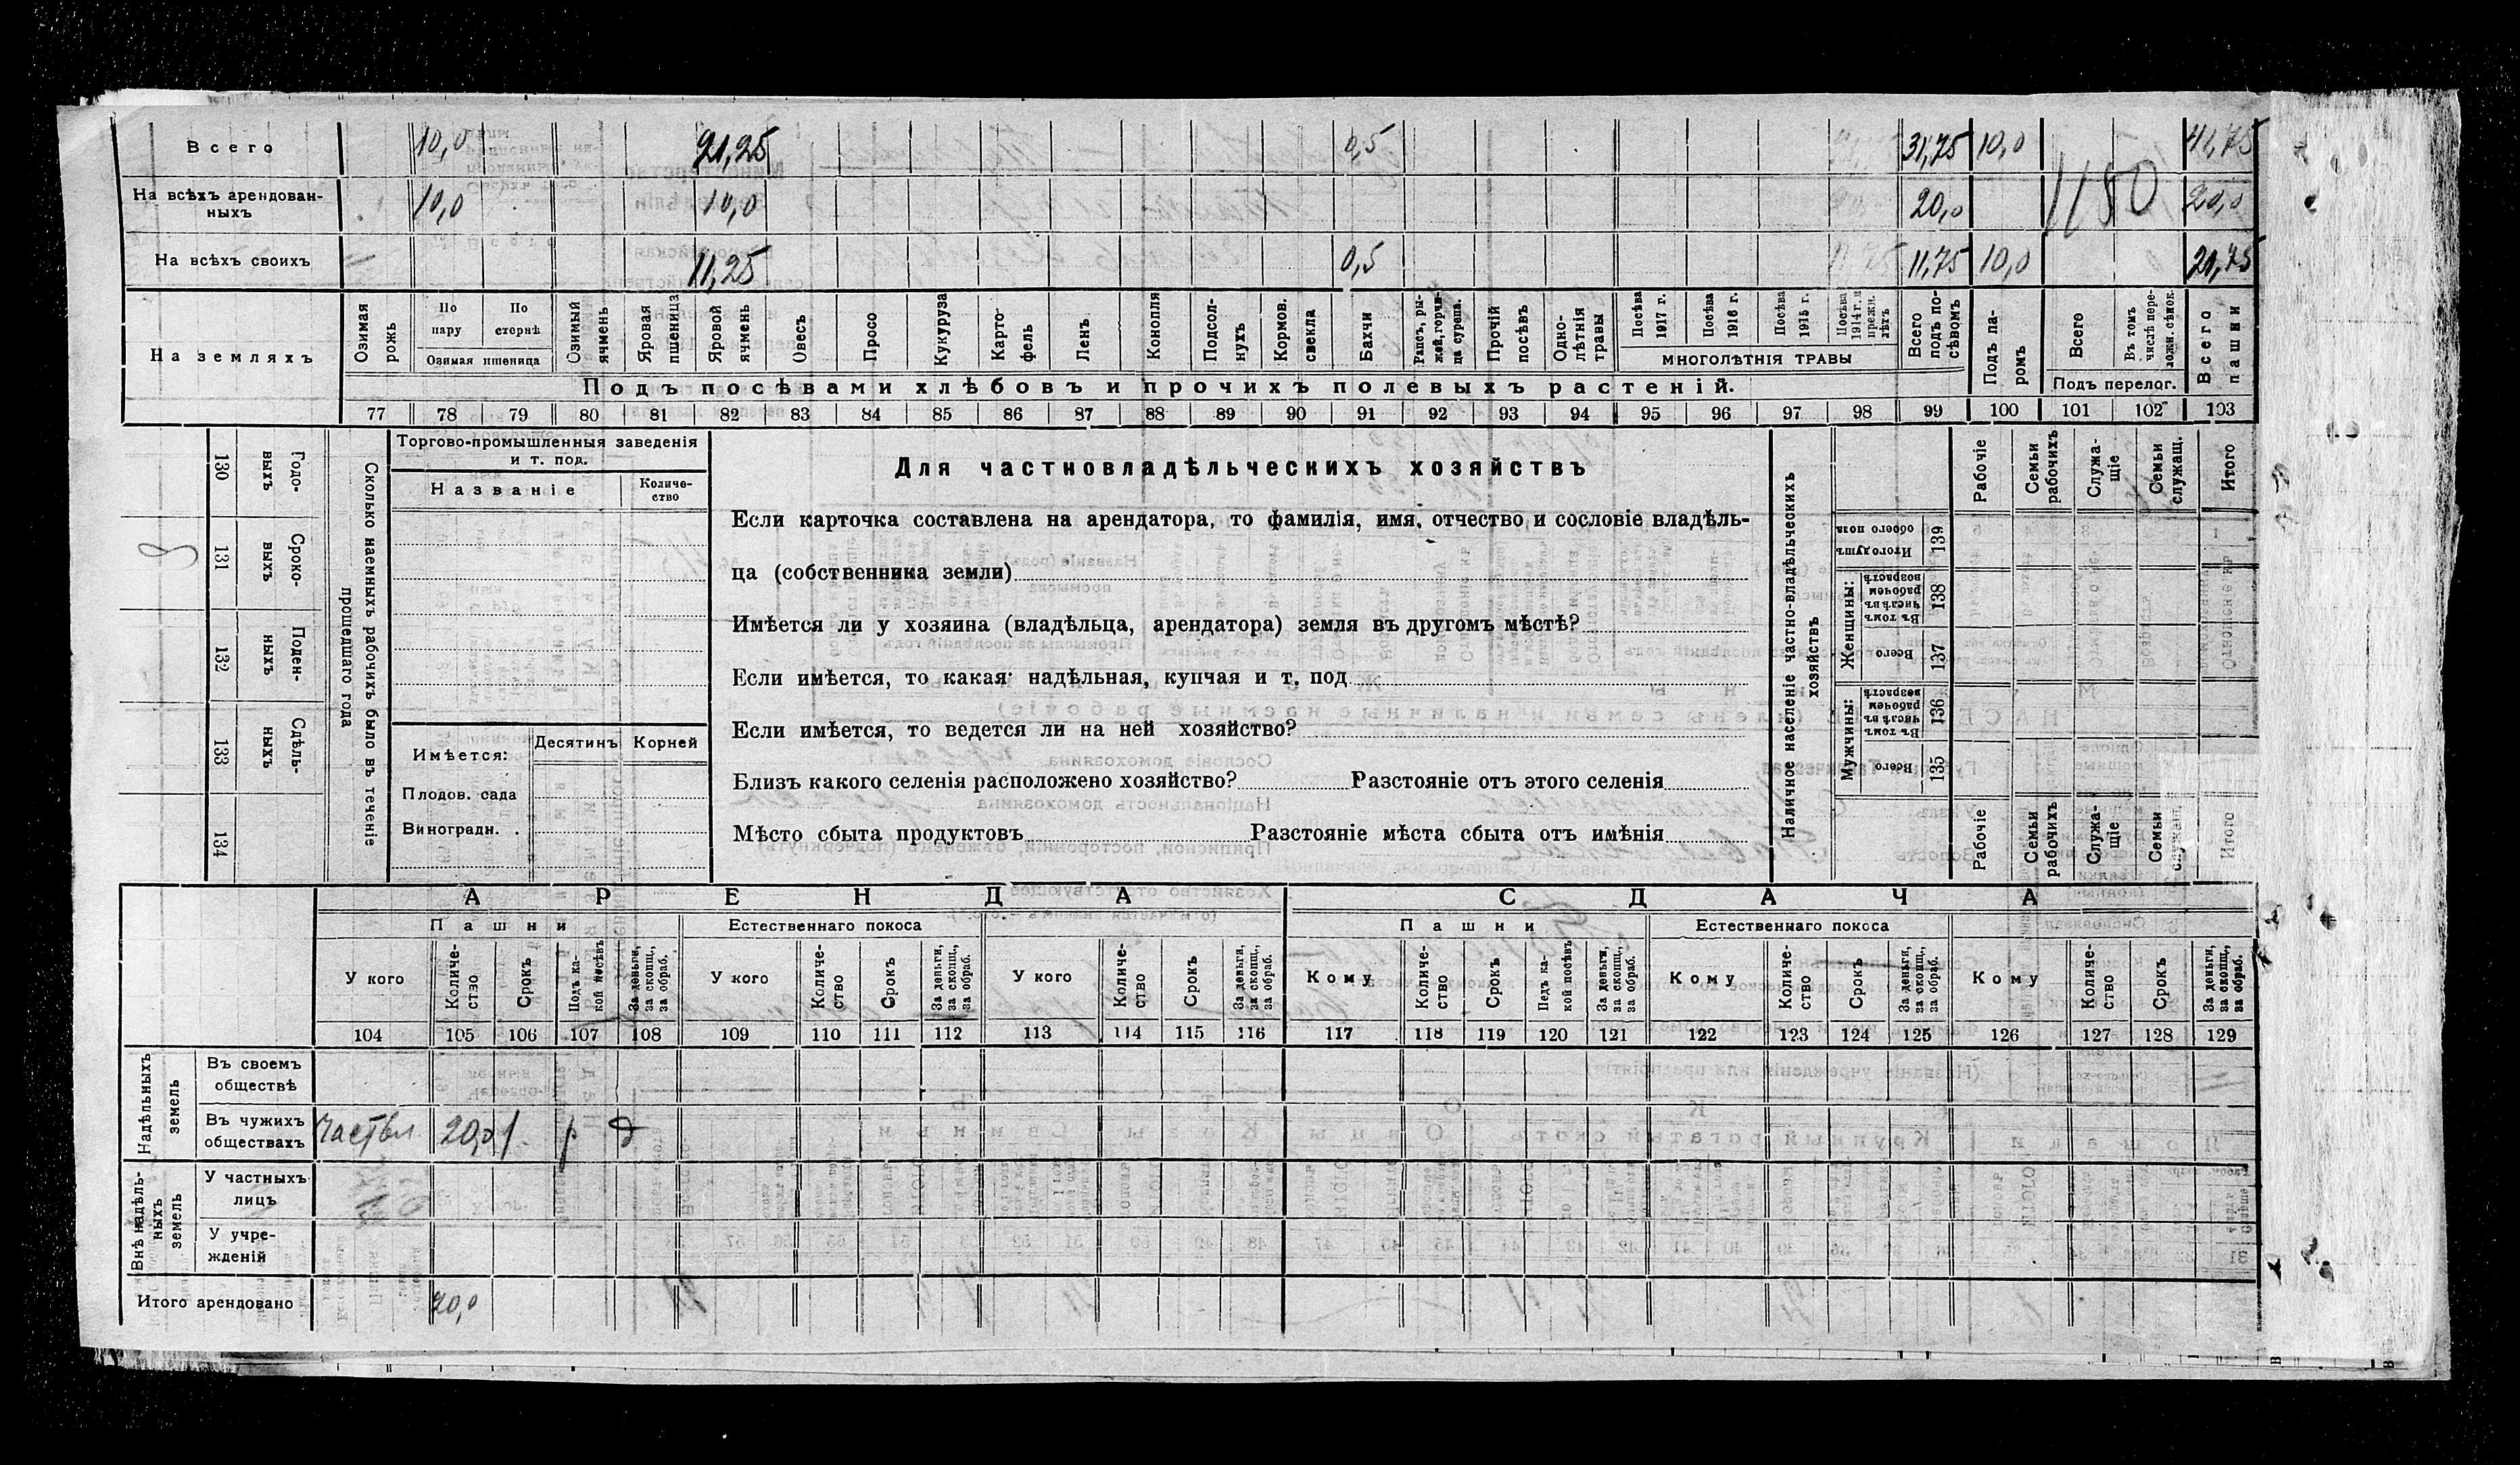 Всего 10,0 21,25 0,5 31,75 10,0 41,75
На всѣхъ арендован-
ныхъ 10,0 10,0 20,0 20,0
1180
На всѣхъ своихъ 11,25 0,5 11,75 10,0 21,75
На земляхъ
Озимая рожь
По пару
По стернѣ
Озимая пшеница
Озимый ячмень
Яровая пшеница
Яровой ячмень
Овесъ
Просо
Кукуруза
Карто-
фель
Ленъ
Конопля
Подсол-
нухъ
Кормов.
свекла
Бахчи
Рапсъ, ры-
жей, горчи-
ца сурепа.
Прочій
посѣвъ
Одно-
лѣтнія
травы
Посѣва
1917 г.
Посѣва
1916 г.
Посѣва
1915 г.
Посѣва
1914 г. и
прежн.
лѣтъ
МНОГОЛѢТНІЯ ТРАВЫ
Всего
подъ по-
сѣвомъ
Подъ па-
ромъ
Всего
Въ томъ
числѣ пере-
ложн. сѣнок.
Подъ перелог.
Всего
пашни
Подъ посѣвами хлѣбовъ и прочихъ полевыхъ растеній.
77 78 79 80 81 82 83 84 85 86 87 88 89 90 91 92 93 94 95 96 97 98 99 100 101 102 103
130 Годо-
выхъ
131 Сроко-
выхъ
8
132 Поден-
ныхъ
133 Сдѣль-
ныхъ
134
Сколько наемныхъ рабочихъ было въ теченіе
прошедшаго года
Торгово-промышленныя заведенія
и т. под.
Названіе
Количе-
ство
Имѣется: Десятинъ Корней
Плодов. сада
Виноградн.
Для частновладѣльческихъ хозяйствъ
Если карточка составлена на арендатора, то фамилія, имя, отчество и сословіе владѣль-
ца (собственника земли)
Имѣется ли у хозяина (владѣльца, арендатора) земля въ другомъ мѣстѣ?
Если имѣется, то какая: надѣльная, купчая и т. под
Если имѣется, то ведется ли на ней хозяйство?
Близъ какого селенія расположено хозяйство? Разстояніе отъ этого селенія
Мѣсто сбыта продуктовъ Разстояніе мѣста сбыта отъ имѣнія
Наличное населеніе частно-владѣльческихъ
хозяйствъ
Рабочіе
Семьи
рабочихъ
Служа-
щіе
Семьи
служащ.
Итого
139 Итого душъ
обоего пола
Женщины:
138 Въ томъ
числѣ въ
рабочемъ
возрастѣ
137 Всего
Мужчины:
136 Въ томъ
числѣ въ
рабочемъ
возрастѣ
135 Всего
Рабочіе
Семьи
рабочихъ
Служа-
щіе
Семьи
служащ.
Итого
АРЕНДА СДАЧА
Пашни Естественнаго покоса Пашни Естественнаго покоса
У кого
Количе-
ство
Срокъ
Подъ ка-
кой посѣвъ
За деньги,
за скопщ.,
за обраб.
У кого
Количе-
ство
Срокъ
За деньги,
за скопщ.,
за обраб.
У кого
Количе-
ство
Срокъ
За деньги,
за скопщ.,
за обраб.
Кому
Количе-
ство
Срокъ
Подъ ка-
кой посѣвъ
За деньги,
за скопщ.,
за обраб.
Кому
Количе-
ство
Срокъ
За деньги,
за скопщ.,
за обраб.
Кому
Количе-
ство
Срокъ
За деньги,
за скопщ.,
за обраб.
104 105 106 107 108 109 110 111 112 113 114 115 116 117 118 119 120 121 122 123 124 125 126 127 128 129
Надѣльныхъ
земель
Въ своемъ
обществѣ
Въ чужихъ
обществахъ Частвл. 20,0 1 р д
Внѣ надѣль-
ныхъ
земель
У частныхъ
лицъ
У учре-
жденій
Итого арендовано 20,0